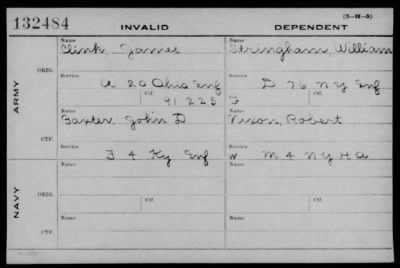 132484
INVALID
DEPENDENT
(3-H-5)
ARMY
ORIG.
Name
Clink, James
Name
Stringham, William
Service
A 20 Ohio Inf
Service
D 76 N Y Inf
Ctf.
91 225
Ctf.
G
CTF.
Name
Baxter, John D
Name
Nixon, Robert
Service
4 Ky Inf
Service
W M 4 N Y H A
NAVY
ORIG.
Name
Name
Ctf.
Ctf.
CTF.
Name
Name